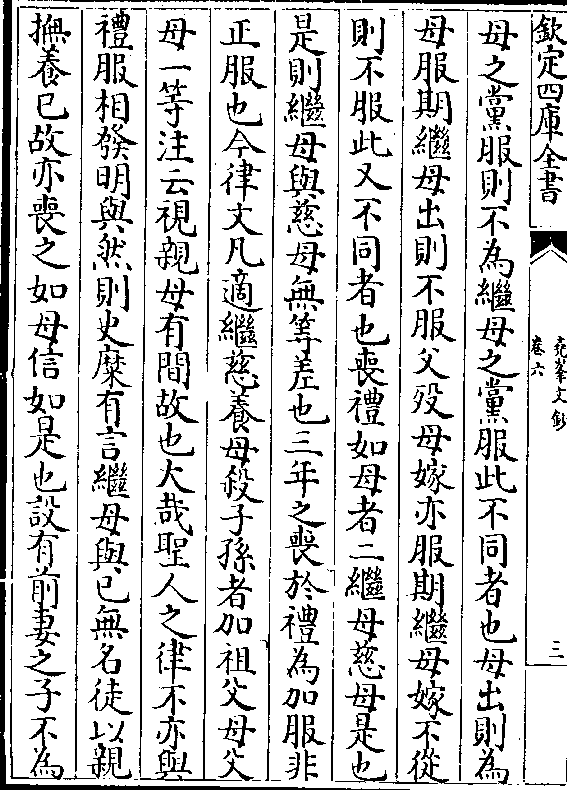 欽定四庫全書
堯峯文鈔
卷六
三
母之黨服則不為繼母之黨服此不同者也母出則為
母服期繼母出則不服父歿母嫁亦服期繼母嫁不從
則不服此又不同者也喪禮如母者二繼母慈母是也
是則繼母與慈母無等差也三年之喪於禮為加服非
正服也今律文凡適繼慈養母殺子孫者加祖父母父
母一等注云視親母有間故也大哉聖人之律不亦與
禮服相發明與然則史糜有言繼母與已無名徒以親
撫養已故亦喪之如母信如是也設有前妻之子不為